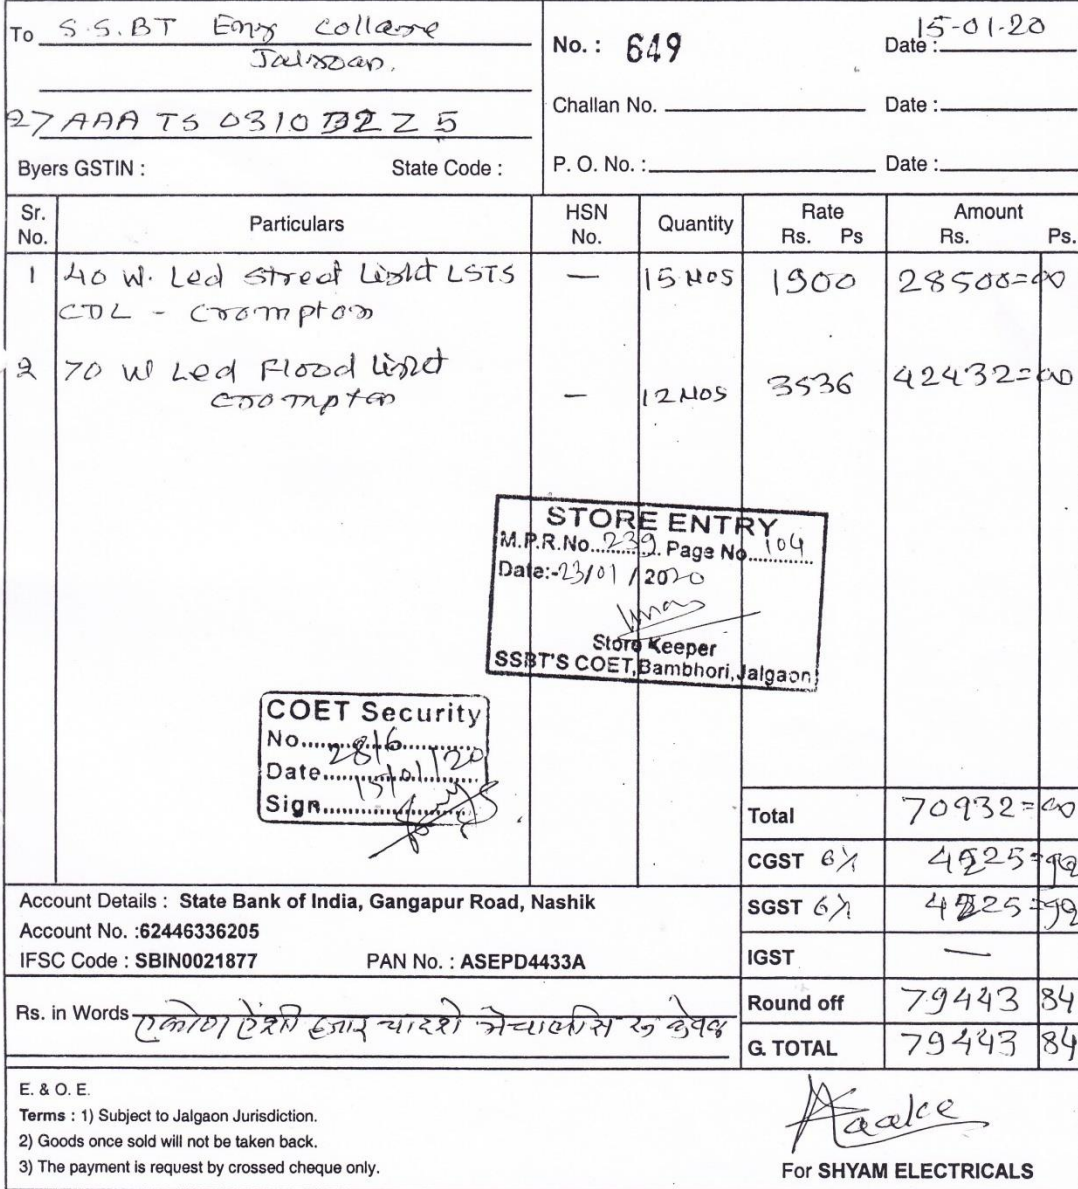 To S.S.BT Eng college
Jalgaon.
27 AAA TS 0310 B2 Z 5
Byers GSTIN : State Code :
No. : 649 Date : 15-01-20
Challan No. Date :
P. O. No. : Date :
Sr. No. Particulars HSN No. Quantity Rate Rs. Ps Amount Rs. Ps.
1 40 W. Led Street Light LSTS — 15 NOS 1900 28500=00
CDL - Crompton
2 70 W Led Flood Light — 12 NOS 3536 42432=00
Crompton
STORE ENTRY
M.P.R.No. 239. Page No. 104
Date:-23/01/2020
Store Keeper
SSBT'S COET,Bambhori,Jalgaon
COET Security
No. 2816
Date 15/01/20
Sign
Total 70932=00
CGST 6% 4225=92
SGST 6% 4225=92
IGST —
Round off 79443 84
G. TOTAL 79443 84
Account Details : State Bank of India, Gangapur Road, Nashik
Account No. :62446336205
IFSC Code : SBIN0021877 PAN No. : ASEPD4433A
Rs. in Words हजार चारशे रु
E. & O. E.
Terms : 1) Subject to Jalgaon Jurisdiction.
2) Goods once sold will not be taken back.
3) The payment is request by crossed cheque only.
For SHYAM ELECTRICALS